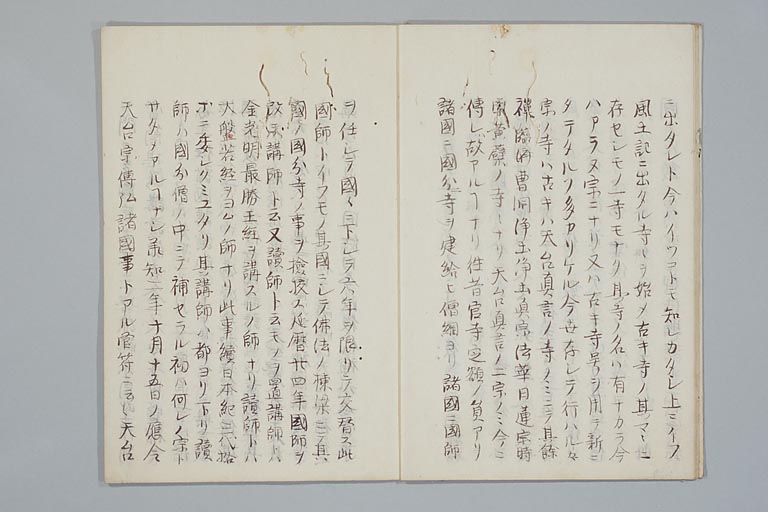 ニ出タレト今ハイツコトモ知レカタシ上ニイフ
風土記ニ出タル寺ヲ始メ古キ寺ノ其マヽニ
存セシモノ一寺モナク其寺ノ名ハ有ナカラ今
ハアラヌ宗ニナリ又ハ古キ寺号ヲ用ヲ新ニ
タテタルソ多カリケル今世存シテ行ハルヽ
宗ノ寺ハ古キハ天台真言ノ寺ノミニテ其餘
禅臨済曹洞浄土浄土真宗法華日蓮宗時
宗黄檗ノ寺ナリ天台真言ノ二宗ノミ今ニ
傳レ故アルコトナリ往昔官寺定額ノ員アリ
諸國ニ國分寺ヲ建給ヒ僧綱ヨリ諸國ニ國師
ヲ任シテ國々ニ下シテ六年ヲ限リニテ交替ス此
國師トイフモノ其國ニシテ佛法ノ棟梁ニテ其
國ノ國分寺ノ事ヲ檢挍ス延暦廿四年國師ヲ
改テ講師ト云又讀師ト云モノヲ置講師ハ
金光明最勝王経ヲ講スルノ師ナリ讀師トハ
大盤若経ヲヨムノ師ナリ此事續日本紀三代格
ホニ委シクミユタリ其講師ハ都ヨリ下リ讀
師ハ國分僧ノ中ニテ補セラル初ハ何レノ宗ト
サタメアルコナシ承和二年十月十五日ノ應令
天台宗傳弘諸國事トアル官符ニ云ク天台